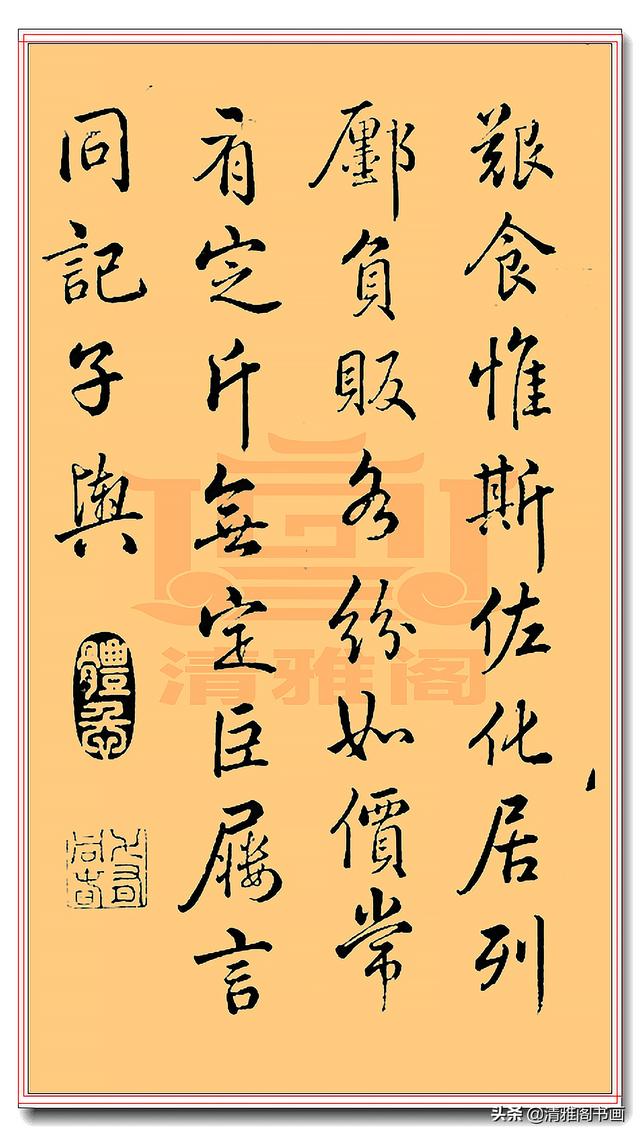 艱食惟斯佐化居列
鄽負販各紛如價常
有定斤無定巨屨言
同記子輿
清雅阁
头条 @清雅阁书画